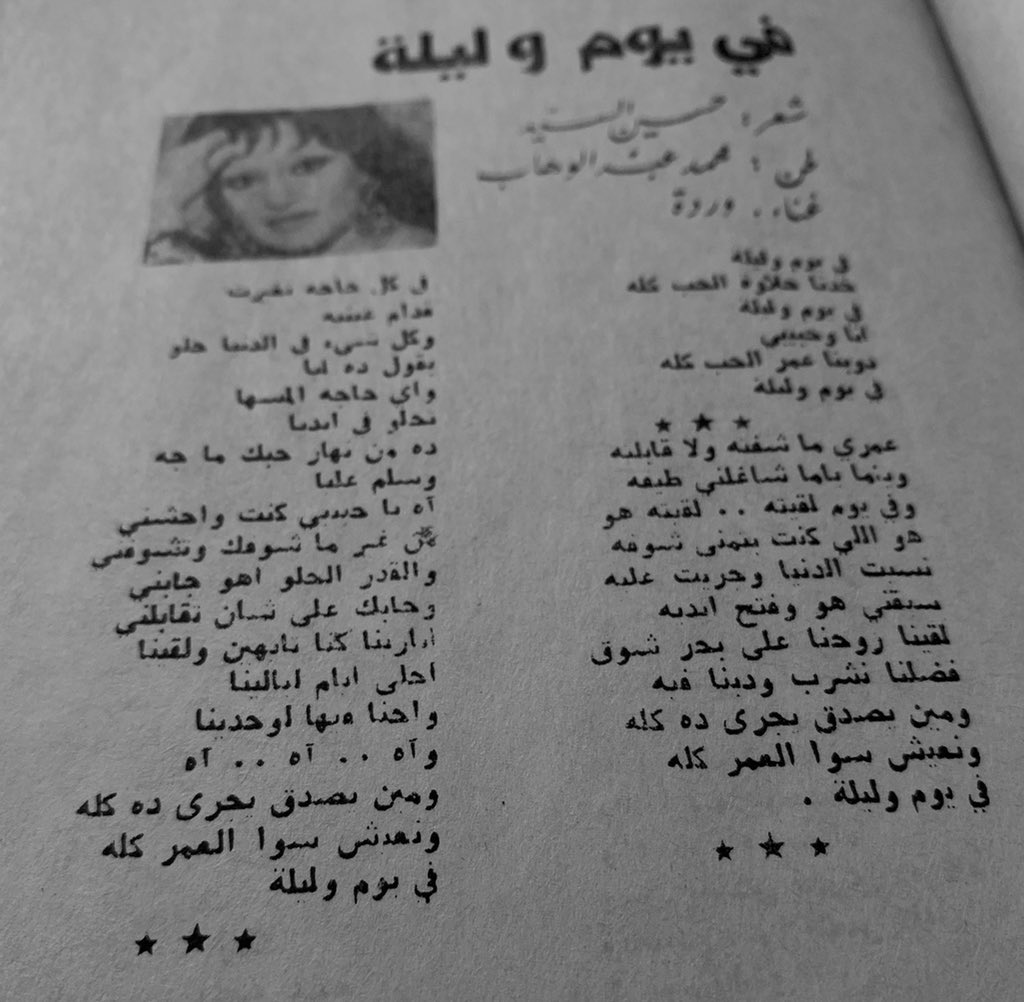 في يوم وليلة
شعر : حسين السيد
لحن : محمد عبد الوهاب
غناء .. وردة
في يوم وليلة
خدنا حلاوة الحب كله
في يوم وليلة
انا وحبيبي
دوبنا عمر الحب كله
في يوم وليلة
★ ★ ★
عمري ما شفته ولا قابلته
وياما ياما شاغلني طيفه
وفي يوم لقيته .. لقيته هو
هو اللي كنت بتمنى شوفه
نسيت الدنيا وجريت عليه
سبقني هو وفتح ايديه
لقينا روحنا على بحر شوق
فضلنا نشرب ودبنا فيه
ومين يصدق يجرى ده كله
ونعيش سوا العمر كله
في يوم وليلة .
★ ★ ★
في كل حاجه تغيرت
قدام عينيه
وكل شيء في الدنيا حلو
يقول ده ليا
واي حاجه المسها
تحلو في ايديا
ده من نهار حبك ما جه
وسلم عليا
آه يا حبيبي كنت واحشني
من غير ما شوفك وتشوفني
والقدر الحلو اهو جابني
وجابك على شان تقابلني
اتارينا كنا تايهين ولقينا
احلى ايام ليالينا
واحنا فيها لوحدينا
وآه .. آه .. آه
ومين يصدق يجرى ده كله
ونعيش سوا العمر كله
في يوم وليلة
★ ★ ★